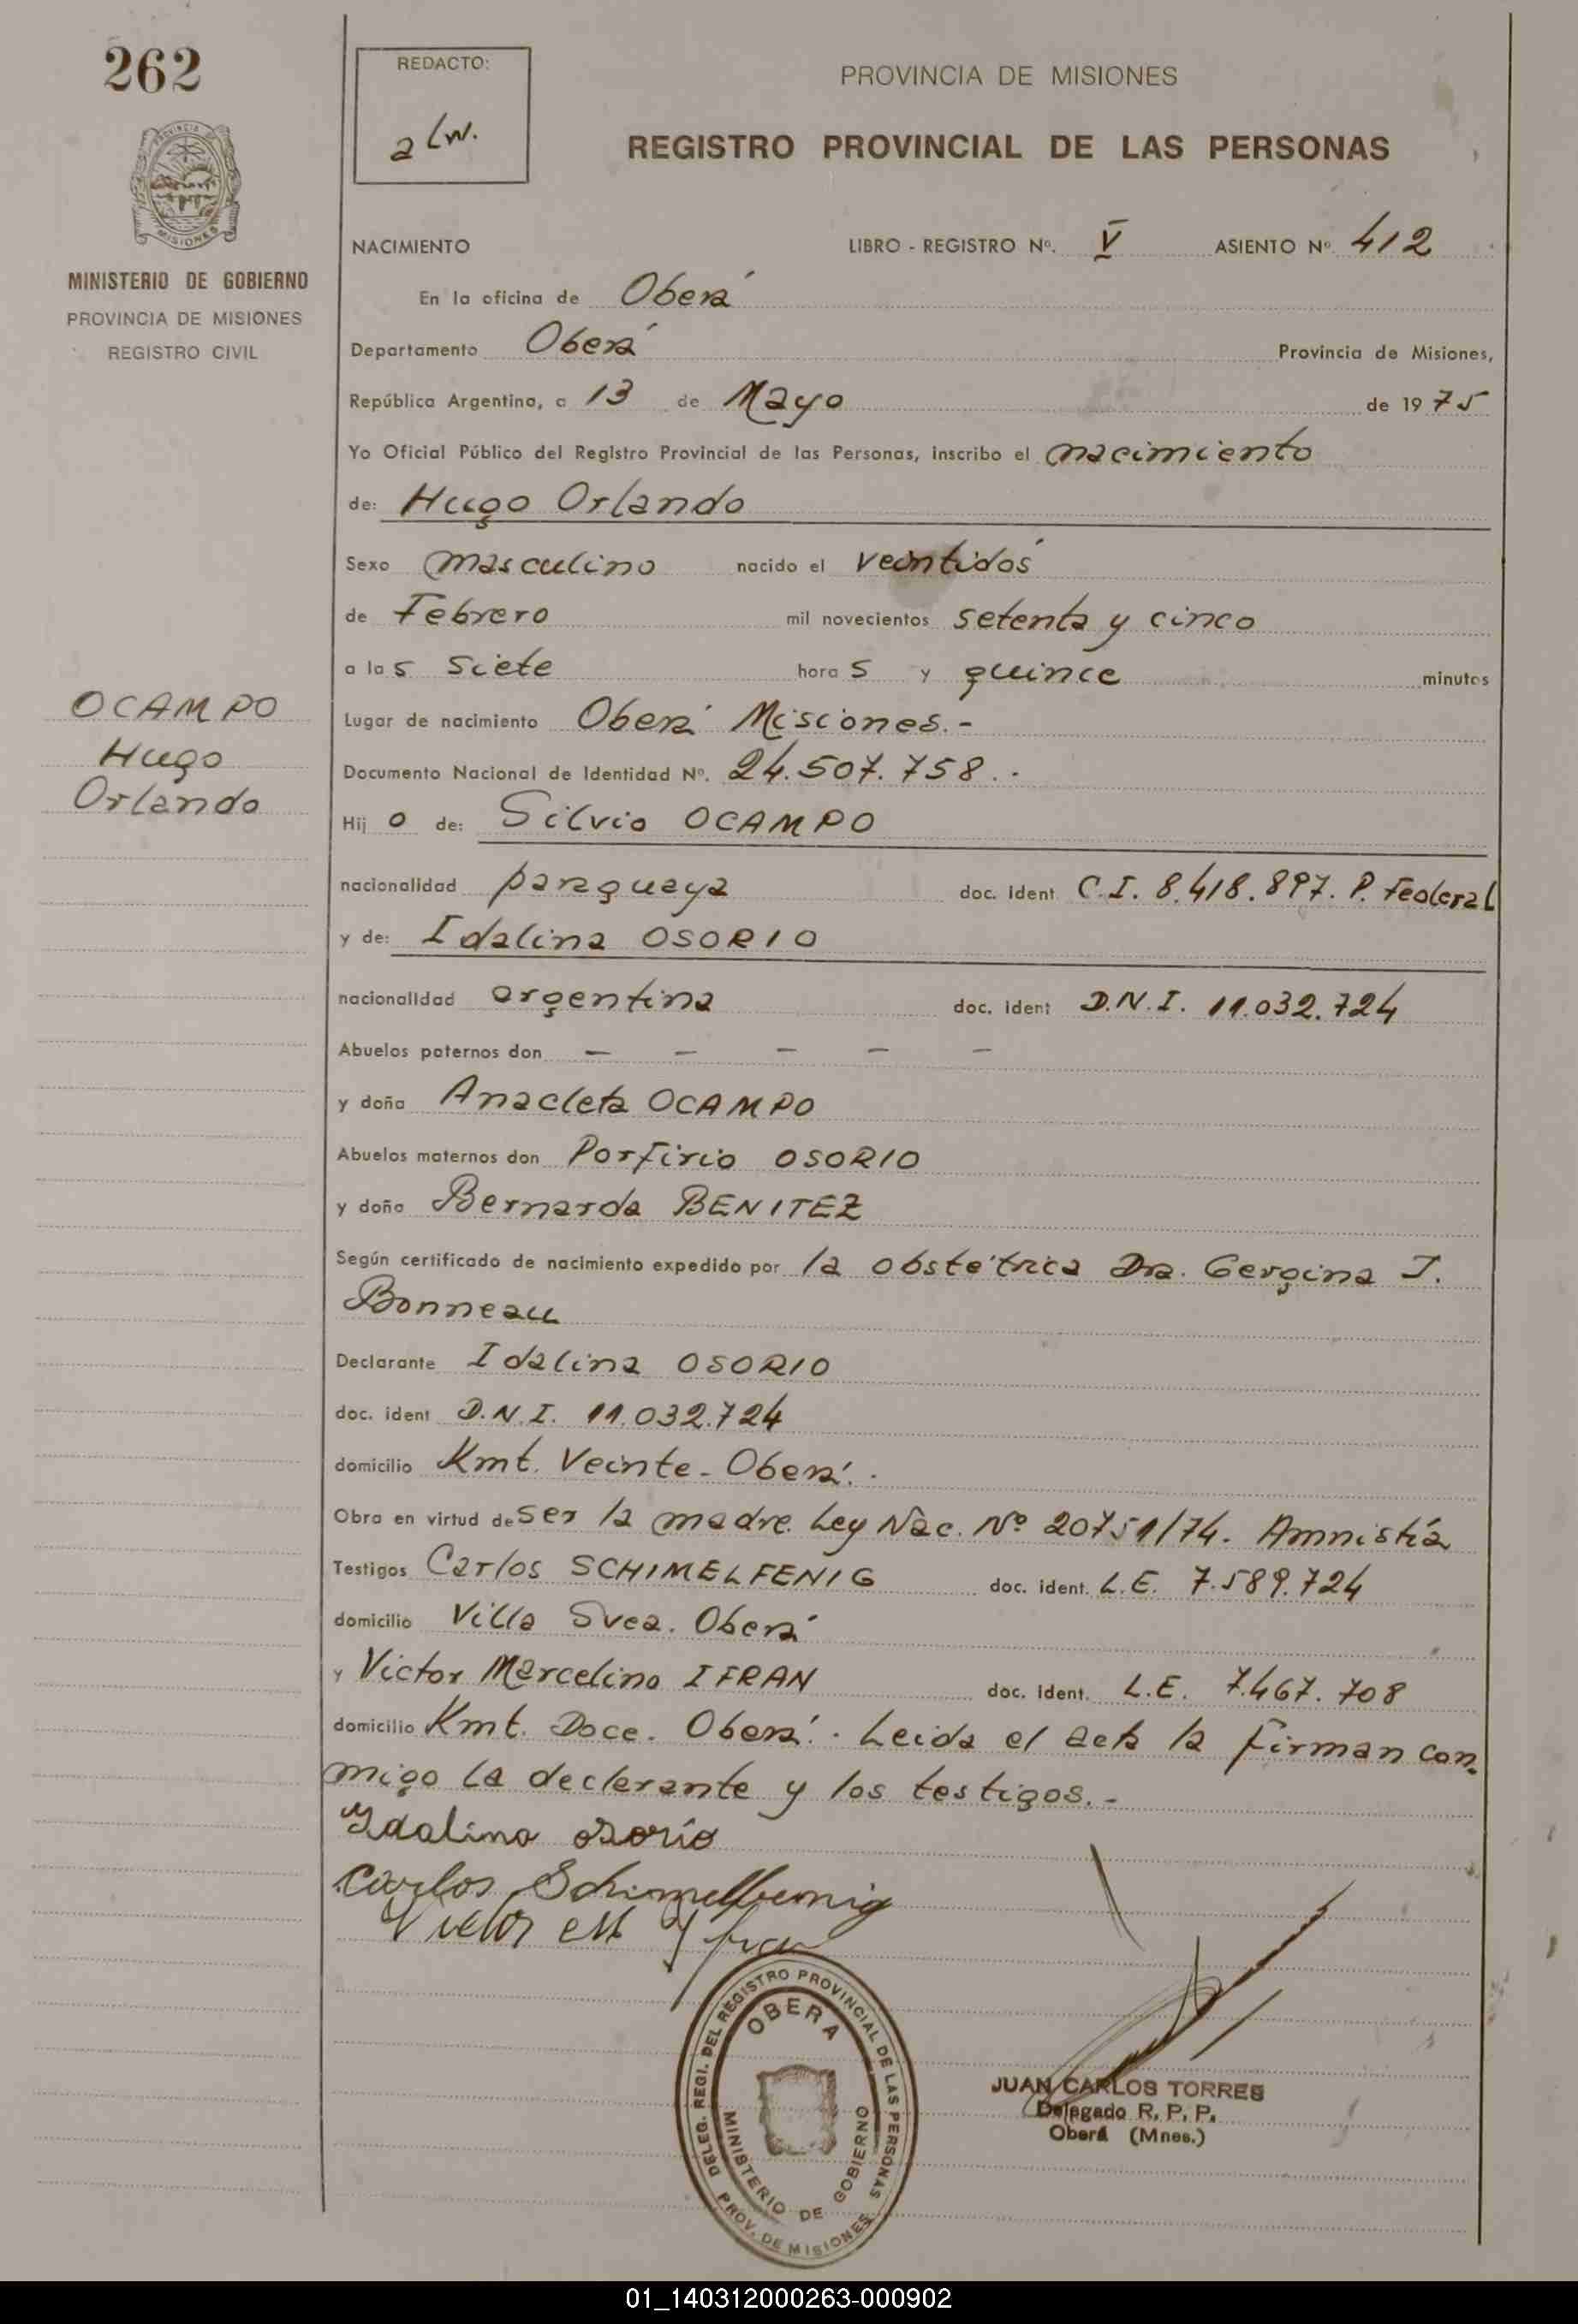 262
REDACTO:
alw.
PROVINCIA DE MISIONES
REGISTRO PROVINCIAL DE LAS PERSONAS
PROVINCIA DE
MISIONES
MINISTERIO DE GOBIERNO
PROVINCIA DE MISIONES
REGISTRO CIVIL
NACIMIENTO LIBRO - REGISTRO Nº. V ASIENTO Nº. 412
En la oficina de Oberá
Departamento Oberá Provincia de Misiones,
República Argentina, a 13 de Mayo de 1975
Yo Oficial Público del Registro Provincial de las Personas, inscribo el nacimiento
de: Hugo Orlando
Sexo masculino nacido el veintidós
de Febrero mil novecientos setenta y cinco
a las siete horas y quince minutos
OCAMPO
Hugo
Orlando
Lugar de nacimiento Oberá Misiones.-
Documento Nacional de Identidad Nº. 24.507.758.-
Hijo de: Silvio OCAMPO
nacionalidad paraguaya doc. ident C.I. 8.418.897. P. Federal
y de: Idalina OSORIO
nacionalidad argentina doc. ident D.N.I. 11.032.724
Abuelos paternos don - - - - -
y doña Anacleta OCAMPO
Abuelos maternos don Porfirio OSORIO
y doña Bernarda BENITEZ
Según certificado de nacimiento expedido por la obstétrica Dra. Gergina J.
Bonneau
Declarante Idalina OSORIO
doc. ident D.N.I. 11.032.724
domicilio Kmt. Veinte - Oberá.-
Obra en virtud de ser la madre. Ley Nac. Nº 20751/74. Amnistía
Testigos Carlos SCHIMELFENIG doc. ident. L.E. 7.589.724
domicilio Villa Svea. Oberá
y Victor Marcelino IFRAN doc. ident. L.E. 7.467.708
domicilio Kmt. Doce. Oberá.- Leida el acta la firman con
migo la declarante y los testigos.-
Ydalina osorio
Carlos Schimelfenig
Victor M Yfran
DELEG. REGI. DEL REGISTRO PROVINCIAL DE LAS PERSONAS
OBERA
MINISTERIO DE GOBIERNO
PROV. DE MISIONES
JUAN CARLOS TORRES
Delegado R. P. P.
Oberá (Mnes.)
01_140312000263-000902